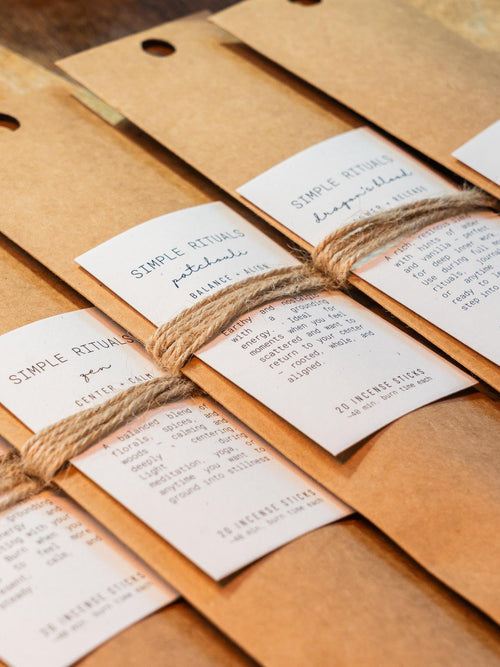 SIMPLE RITUALS
dragon's blood
+ RELEASE
A rich
with hints of
and vanilla — perfect
for deep inner
Use during full
rituals,
or anytime
ready to
step into
20 INCENSE STICKS
~40 min. burn time each
SIMPLE RITUALS
patchouli
BALANCE + ALIGN
earthy and
with a grounding
energy. Ideal for
moments when you feel
scattered and want to
return to your center
— rooted, whole, and
aligned.
20 INCENSE STICKS
~40 min. burn time each
SIMPLE RITUALS
zen
CENTER + CALM
A balanced blend of
florals, spices, and
woods — calming and
deeply centering.
Light during
meditation, yoga, or
anytime you want to
ground into stillness
20 INCENSE STICKS
~40 min. burn time each
grounding
energy and
with your
Burn when
to feel more
calm, and
steady
20 INCENSE STICKS
~40 min. burn time each